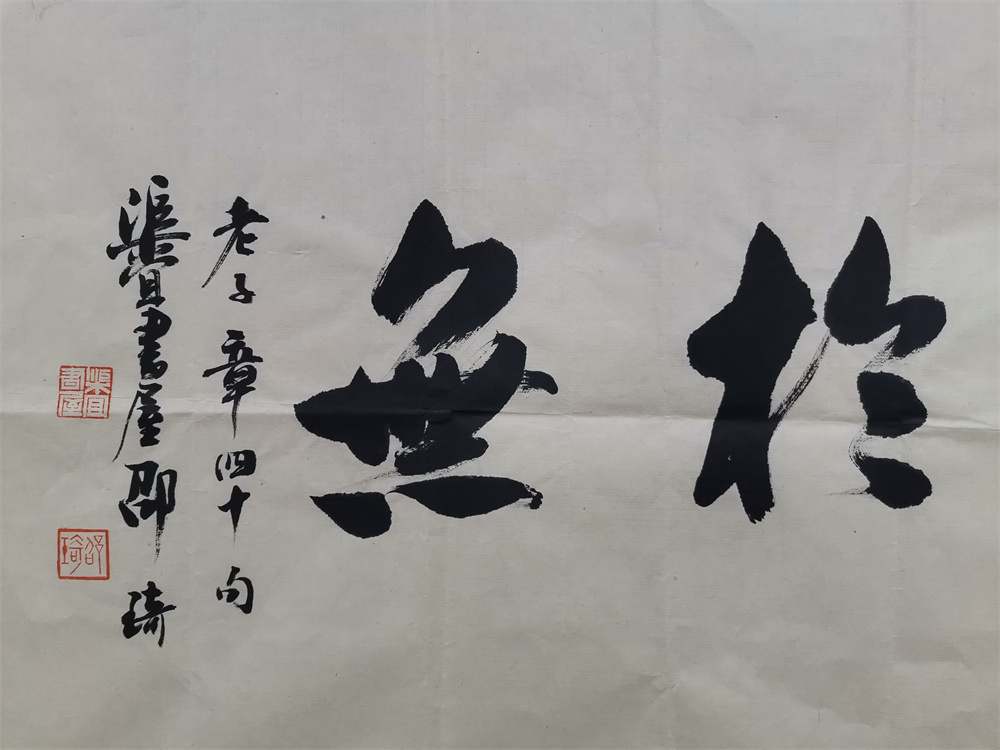 於無
老子章四十句
書屋邵琦
書屋
邵琦